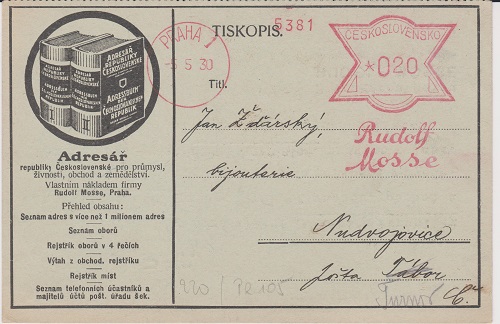 ADRESÁŘ
REPUBLIKY
ČESKOSLOVENSKÉ
ADRESSBUCH
DER
ČECHOSLOVAKISCHEN
REPUBLIK
I
II
Adresář
republiky Československé pro průmysl,
živnosti, obchod a zemědělství.
Vlastním nákladem firmy
Rudolf Mosse, Praha.
Přehled obsahu:
Seznam adres s více než 1 milionem adres
Seznam oborů
Rejstřík oborů v 4 řečích
Výtah z obchod. rejstříku
Rejstřík míst
Seznam telefonních účastníků a
majitelů účtů pošt. úřadu šek.
PRAHA 1
-5 5 30
TISKOPIS.
5381
ČESKOSLOVENSKO
*020
Rudolf
Mosse
Titl.
Jan Žďárský,
bijouterie
Nudvojovice
Tábor
Turnov